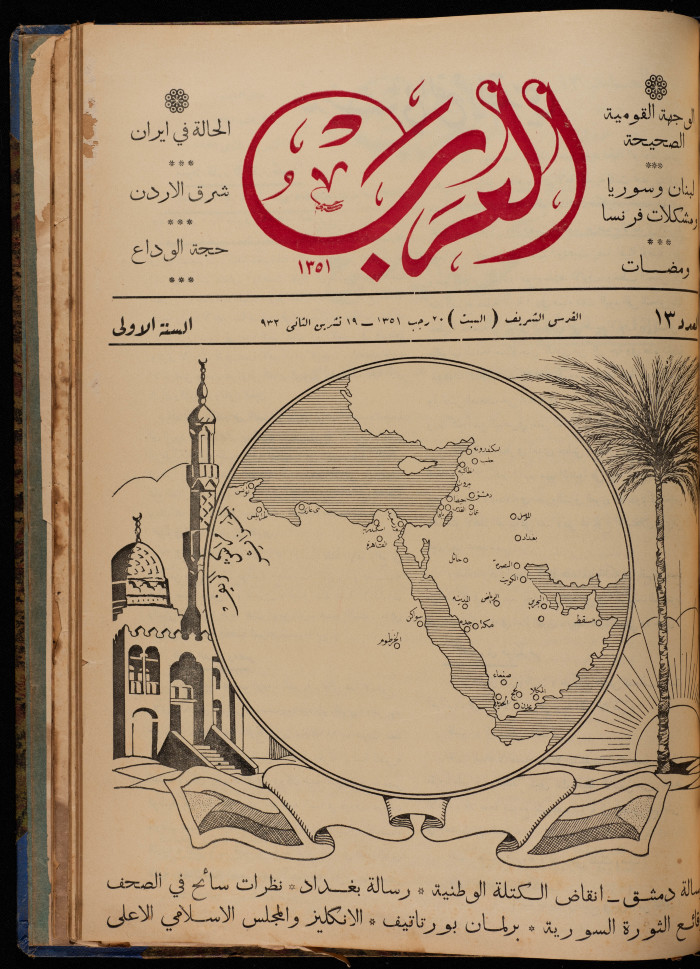 العرب
١٣٥١
الوجهة القومية
الصحيحة
لبنان وسوريا
ومشكلات فرنسا
ومضات
الحالة في ايران
شرق الاردن
حجة الوداع
العدد ١٣
القدس الشريف ( السبت ) ٢٠ رجب ١٣٥١ ــ ١٩ تشرين الثاني ٩٣٢
السنة الاولى
اسكندرونه
حلب
بيروت
دمشق
حيفا
القدس
عمان
الموصل
بغداد
تونس
طرابلس
اسكندرية
القاهرة
حائل
البصرة
الكويت
البحرين
مسقط
المدينه
الرياض
جده
مكة
سواكن
الخرطوم
صنعاء
المكلا
عدن
سالة دمشق ــ انقاض الكتلة الوطنية * رسالة بغداد * نظرات سائح في الصحف
قائع الثورة السورية * برلمان بورتاتيف * الانكليز والمجلس الاسلامي الاعلى